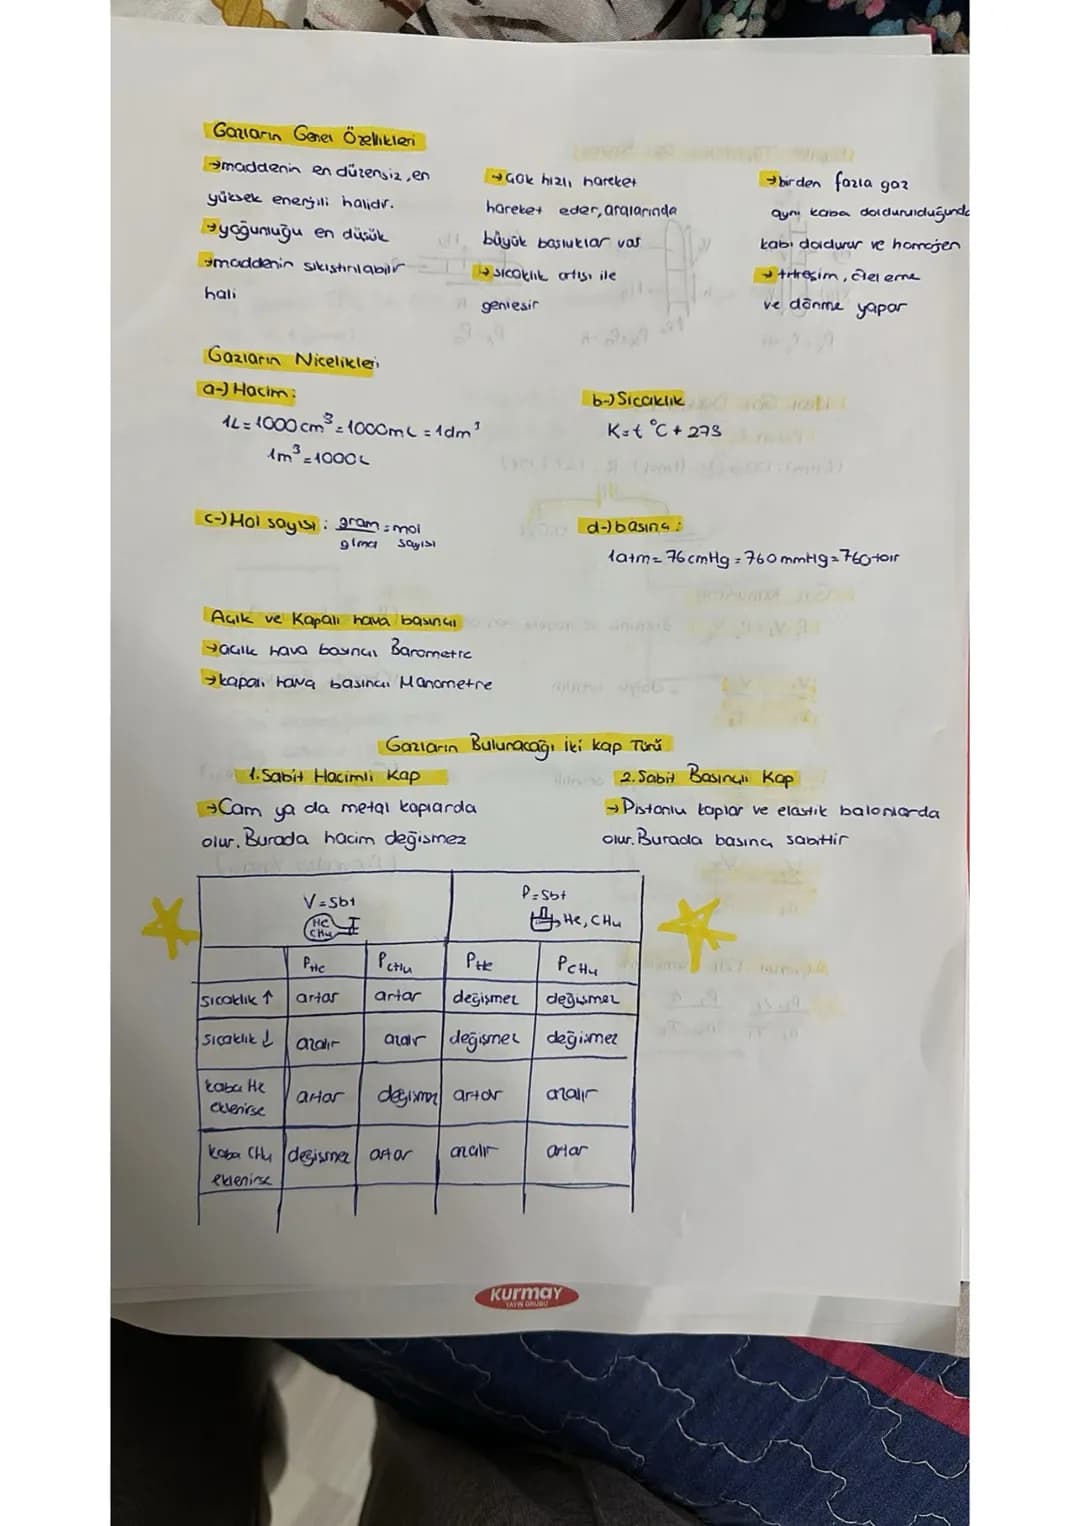 Gazların Genel Özellikleri
→maddenin en düzensiz, en
yüksek enerjili halidir.
→yoğunluğu en düşük
→maddenin sıkıştırılabilir
hali
→Çok hızlı hareket
hareket eder, aralarında
büyük boşluklar var
→sıcaklık artışı ile
genleşir
→birden fazla gaz
aynı kaba doldurulduğunda
kabı doldurur ve homojen
→titreşim, öteleme
ve dönme yapar
Gazların Nicelikleri
a-) Hacim:
1L = 1000 cm³ = 1000mL = 1dm³
1m³ = 1000L
b-) Sıcaklık
K = t °C + 273
c-) Mol sayısı : gram = mol
g/mol sayısı
d-) basınç :
1atm = 76 cmHg = 760 mmHg = 760 torr
Açık ve Kapalı hava basıncı
→açık hava basıncı Barometre
→kapalı hava basıncı Manometre
Gazların Bulunacağı iki kap Türü
1. Sabit Hacimli Kap
→Cam ya da metal kaplarda
olur. Burada hacim değişmez
2. Sabit Basınçlı Kap
→Pistonlu kaplar ve elastik balonlarda
olur. Burada basınç sabittir
V = sbt
He
CH₄
P = sbt
He, CH₄
PHe PCH₄ PHe PCH₄
Sıcaklık ↑ artar artar değişmez değişmez
Sıcaklık ↓ azalır azalır değişmez değişmez
kaba He
eklenirse
artar değişmez artar azalır
kaba CH₄
eklenirse
değişmez artar azalır artar
Kurmay
YAYIN GRUBU